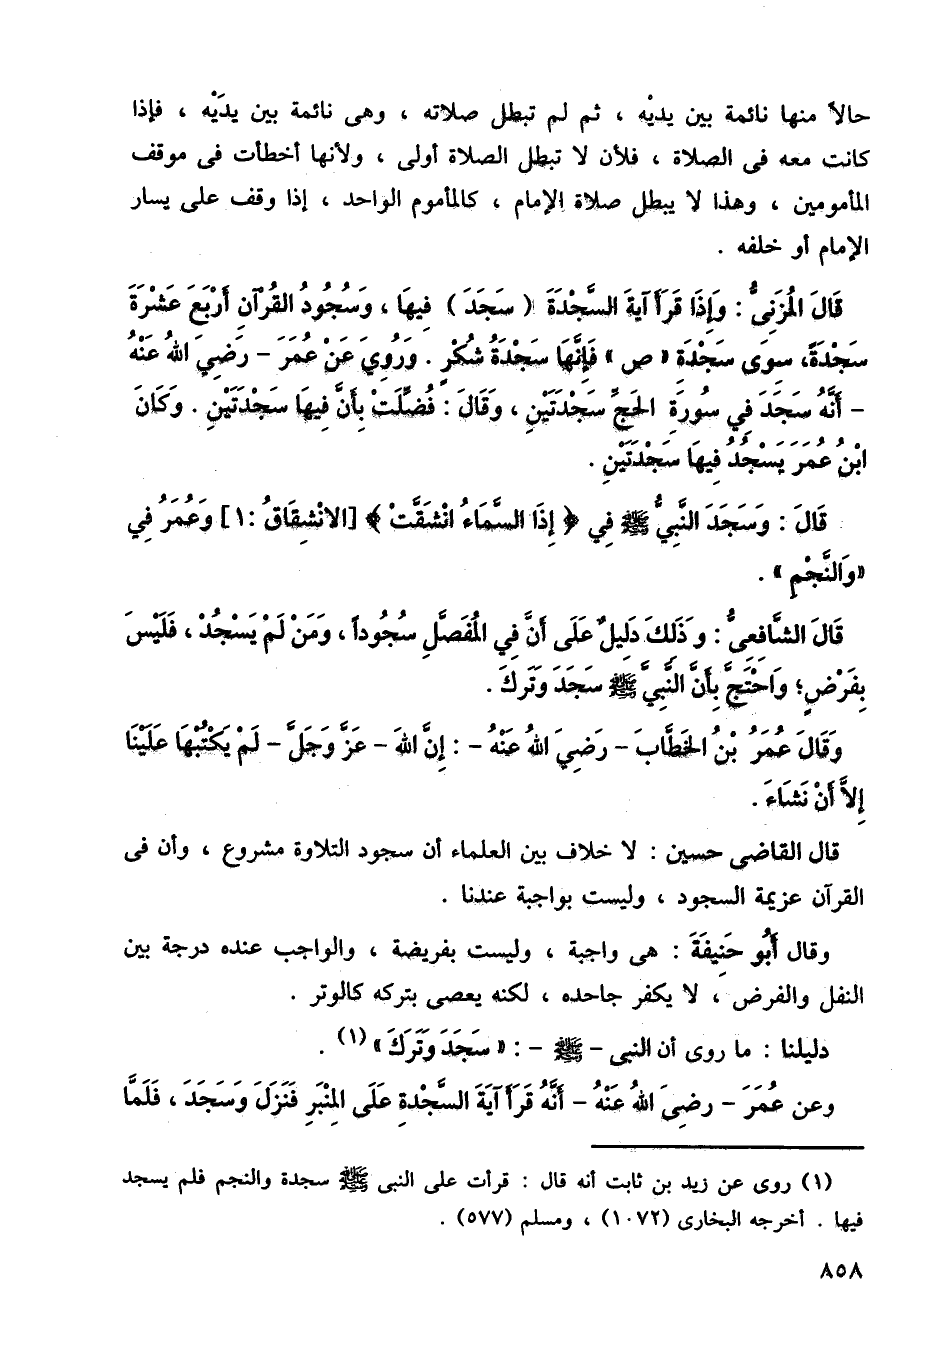 حالاً منها نائمة بين يديْه ، ثم لم تبطل صلاته ، وهى نائمة بين يدَيْه ، فإذا
كانت معه فى الصلاة ، فلأن لا تبطل الصلاة أولى ، ولأنها أخطأت فى موقف
المأمومين ، وهذا لا يبطل صلاة الإمام ، كالمأموم الواحد ، إذا وقف على يسار
الإمام أو خلفه .
قَالَ المُزَنِىُّ : وَإِذَا قَرَأَ آيَةَ السَّجْدَةَ ( سَجَدَ ) فِيهَا ، وَسُجُودُ القُرْآنِ أَرْبَعَ عَشْرَةَ
سَجْدَةً، سِوَى سَجْدَةَ « ص » فَإِنَّهَا سَجْدَةُ شُكْرٍ . وَرُوِيَ عَنْ عُمَرَ – رَضِيَ اللهُ عَنْهُ
– أَنَّهُ سَجَدَ فِي سُورَةِ الحَجِّ سَجْدَتَيْنِ ، وَقَالَ : فُضِّلَتْ بِأَنَّ فِيهَا سَجْدَتَيْنِ . وَكَانَ
ابْنُ عُمَرَ يَسْجُدُ فِيهَا سَجْدَتَيْنِ .
قَالَ : وَسَجَدَ النَّبِيُّ ﷺ فِي ﴿ إِذَا السَّمَاءُ انْشَقَّتْ ﴾ [الانْشِقَاقُ :١] وَعُمَرُ فِي
«وَالنَّجْمِ» .
قَالَ الشَّافِعِىُّ : وَذَلِكَ دَلِيلٌ عَلَى أَنَّ فِي المُفَصَّلِ سُجُوداً ، وَمَنْ لَمْ يَسْجُدْ ، فَلَيْسَ
بِفَرْضٍ؛ وَاحْتَجَّ بِأَنَّ النَّبِيَّ ﷺ سَجَدَ وَتَرَكَ .
وَقَالَ عُمَرُ بْنُ الخَطَّابِ – رَضِيَ اللهُ عَنْهُ – : إِنَّ اللهَ – عَزَّ وَجَلَّ – لَمْ يَكْتُبْهَا عَلَيْنَا
إِلاَّ أَنْ نَشَاءَ .
قال القاضى حسين : لا خلاف بين العلماء أن سجود التلاوة مشروع ، وأن فى
القرآن عزيمة السجود ، وليست بواجبة عندنا .
وقال أَبُو حَنِيفَةَ : هى واجبة ، وليست بفريضة ، والواجب عنده درجة بين
النفل والفرض ، لا يكفر جاحده ، لكنه يعصى بتركه كالوتر .
دليلنا : ما روى أن النبى – ﷺ – : « سَجَدَ وَتَرَكَ » (١) .
وعن عُمَرَ – رضىَ اللهُ عَنْهُ – أَنَّهُ قَرَأَ آيَةَ السَّجْدةِ عَلَى المِنْبَرِ فَنَزَلَ وَسَجَدَ ، فَلَمَّا
(١) روى عن زيد بن ثابت أنه قال : قرأت على النبى ﷺ سجدة والنجم فلم يسجد
فيها . أخرجه البخارى (١٠٧٢) ، ومسلم (٥٧٧) .
٨٥٨